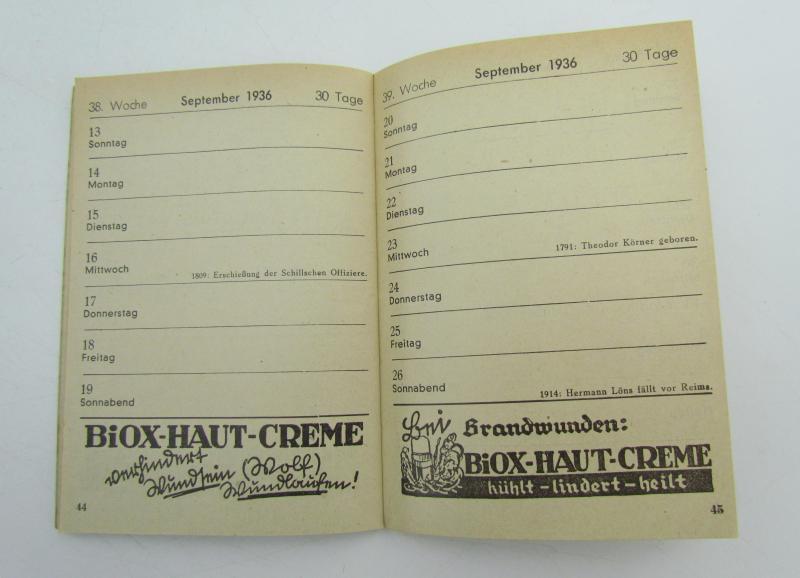 38. Woche September 1936 30 Tage
13
Sonntag
14
Montag
15
Dienstag
16
Mittwoch 1809: Erschießung der Schillschen Offiziere.
17
Donnerstag
18
Freitag
19
Sonnabend
BiOX-HAUT-CREME
verhindert
Wundsein (Wolf)
Wundlaufen!
44
39. Woche September 1936 30 Tage
20
Sonntag
21
Montag
22
Dienstag
23
Mittwoch 1791: Theodor Körner geboren.
24
Donnerstag
25
Freitag
26
Sonnabend 1914: Hermann Löns fällt vor Reims.
Bei Brandwunden:
BiOX-HAUT-CREME
kühlt-lindert-heilt
45